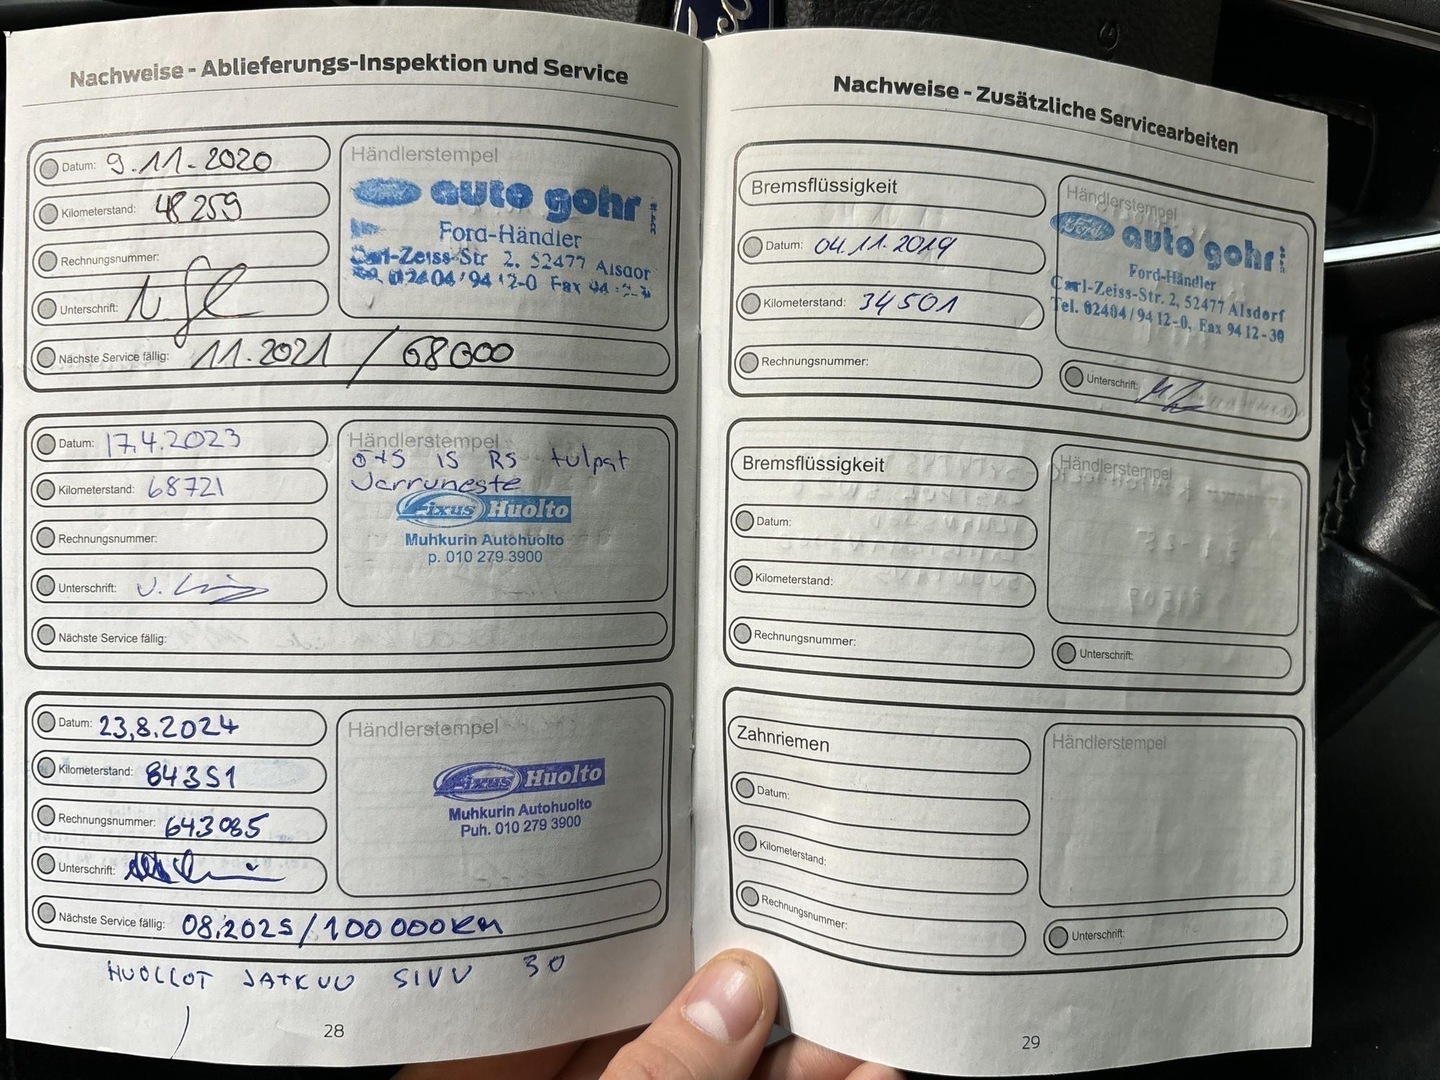 Nachweise - Ablieferungs-Inspektion und Service
Datum: 9.11.2020
Kilometerstand: 48259
Rechnungsnummer:
Unterschrift:
Nächste Service fällig: 11.2021 / 68000
Händlerstempel
Ford auto gohr
Ford-Händler
Carl-Zeiss-Str 2, 52477 Alsdorf
02404/94 12-0 Fax
Datum: 17.4.2023
Kilometerstand: 68721
Rechnungsnummer:
Unterschrift:
Nächste Service fällig:
Händlerstempel
ö+s IS RS tulpat
Jarruneste
Fixus Huolto
Muhkurin Autohuolto
p. 010 279 3900
Datum: 23.8.2024
Kilometerstand: 84351
Rechnungsnummer: 643085
Unterschrift:
Nächste Service fällig: 08.2025/100 000KM
Händlerstempel
Fixus Huolto
Muhkurin Autohuolto
Puh. 010 279 3900
HUOLLOT JATKUU SIVU 30
28
Nachweise - Zusätzliche Servicearbeiten
Bremsflüssigkeit
Datum: 04.11.2019
Kilometerstand: 34501
Rechnungsnummer:
Händlerstempel
Ford auto gohr
Ford-Händler
Carl-Zeiss-Str. 2, 52477 Alsdorf
Tel. 02404/94 12-0, Fax 94 12-30
Unterschrift:
Bremsflüssigkeit
Datum:
Kilometerstand:
Rechnungsnummer:
Händlerstempel
Unterschrift:
Zahnriemen
Datum:
Kilometerstand:
Rechnungsnummer:
Händlerstempel
Unterschrift:
29